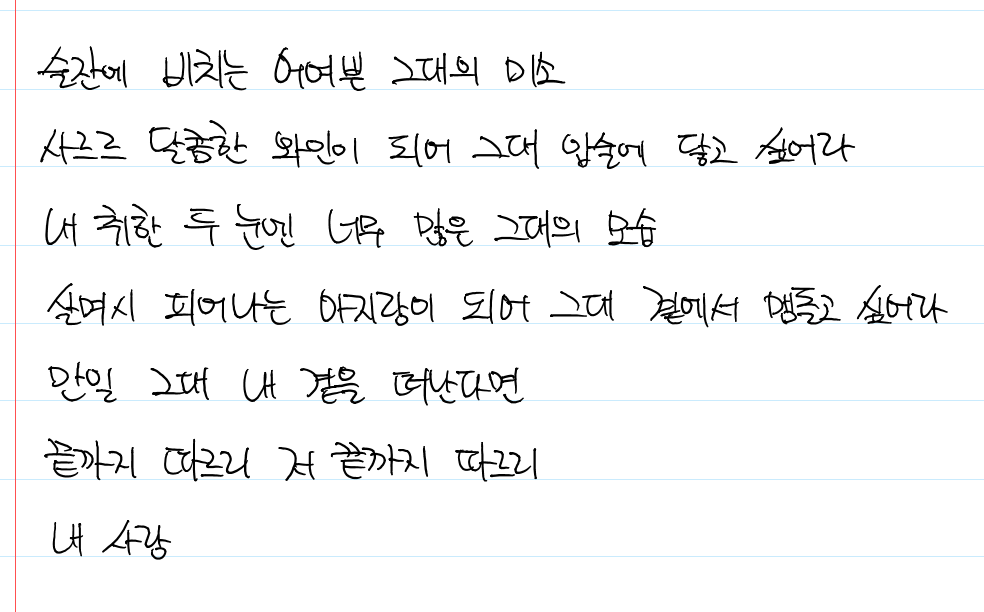 술잔에 비치는 어여쁜 그대의 미소
사르르 달콤한 와인이 되어 그대 입술에 닿고 싶어라
내 취한 두 눈엔 너무 많은 그대의 모습
살며시 피어나는 아지랑이 되어 그대 곁에서 맴돌고 싶어라
만일 그대 내 곁을 떠난다면
끝까지 따르리 저 끝까지 따르리
내 사랑